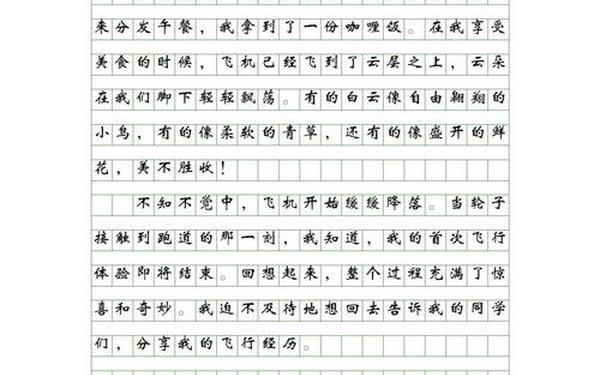 来分发午餐，我拿到了一份咖喱饭。在我享受
美食的时候，飞机已经飞到了云层之上，云朵
在我们脚下轻轻飘荡。有的白云像自由翱翔的
小鸟，有的像柔软的青草，还有的像盛开的鲜
花，美不胜收！
不知不觉中，飞机开始缓缓降落。当轮子
接触到跑道的那一刻，我知道，我的首次飞行
体验即将结束。回想起来，整个过程充满了惊
喜和奇妙。我迫不及待地想回去告诉我的同学
们，分享我的飞行经历。